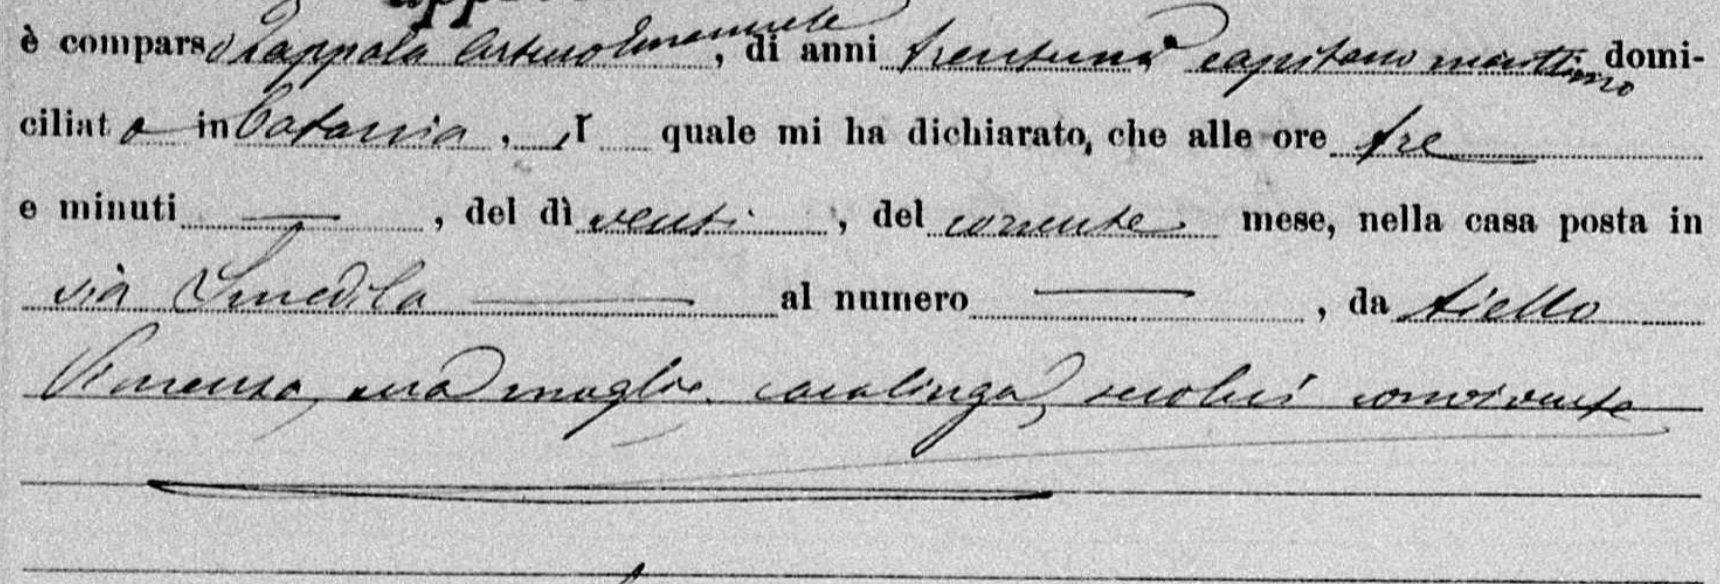 è comparso Zappalà Arturo Emanuele, di anni trentuno capitano marittimo domi-
ciliato in Catania, il quale mi ha dichiarato, che alle ore tre
e minuti —, del dì venti, del corrente mese, nella casa posta in
via al numero —, da Aiello
Vincenza, sua moglie casalinga, secolui convivente